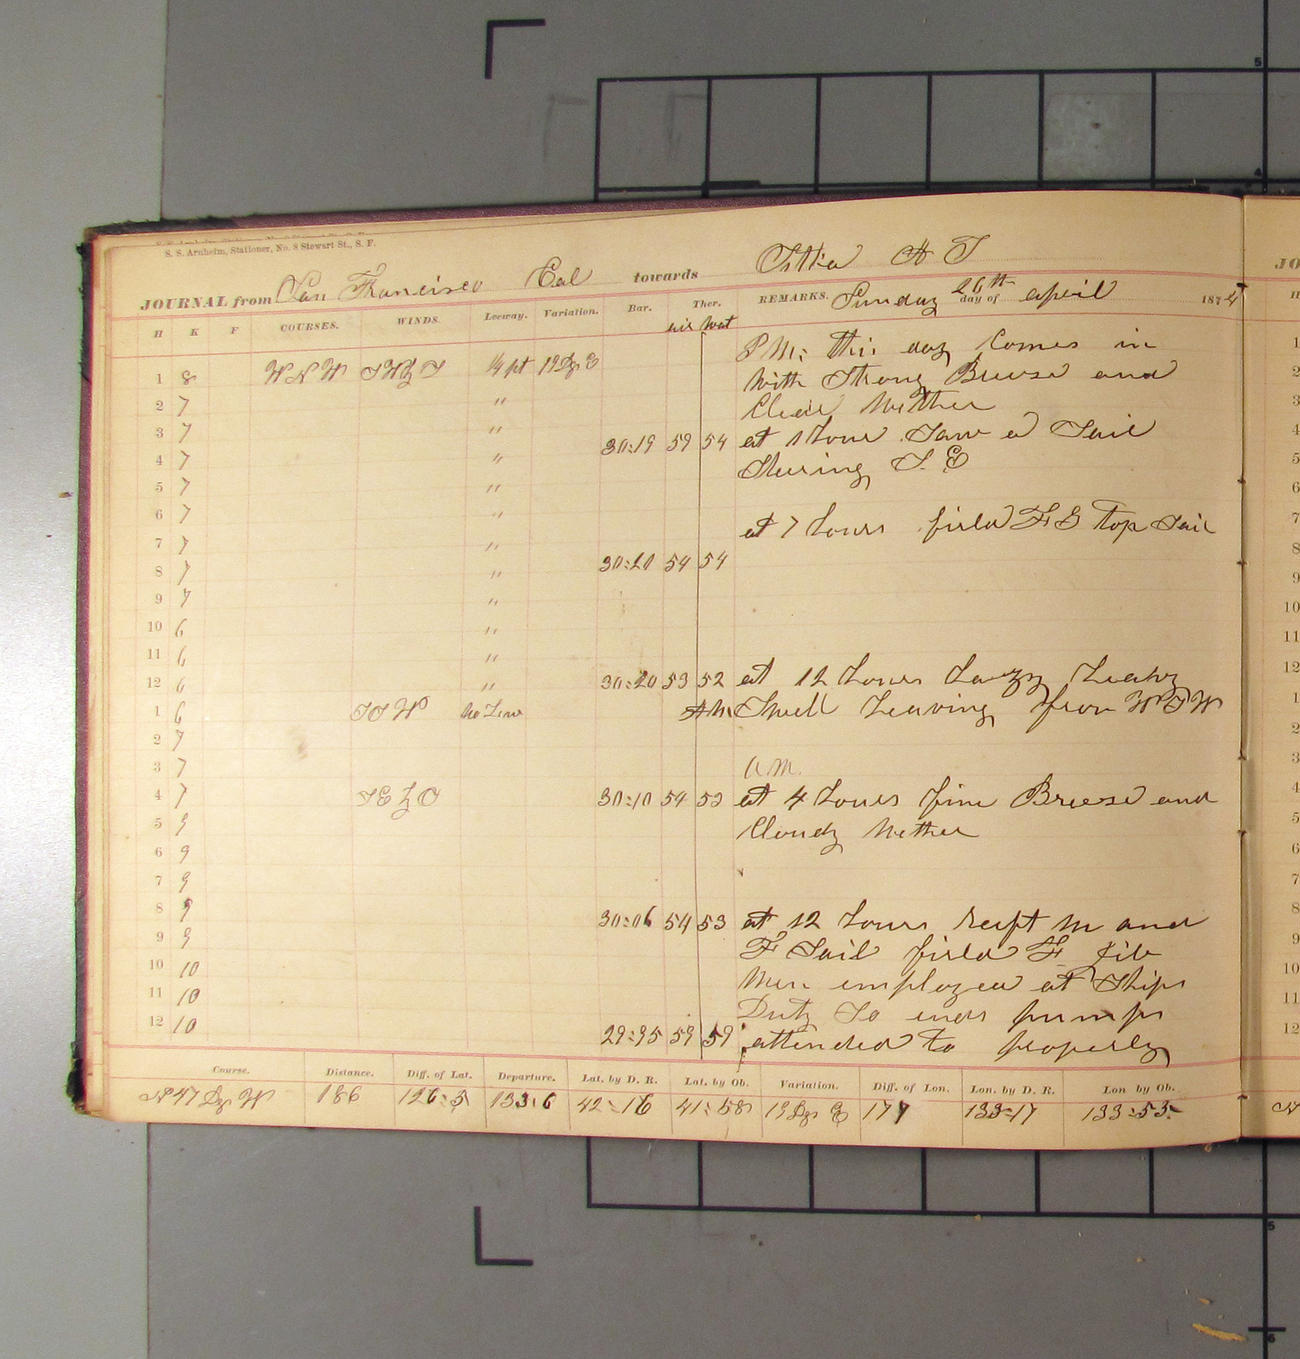 S. S. Arnheim, Stationer, No. 8 Stewart St., S. F.
JOURNAL from San Francisco Cal towards Sitka A T
REMARKS. Sunday 26th day of april 1874
H K F COURSES. WINDS. Leeway. Variation. Bar. Ther.
air wat
P M: this day Comes in
1 8 W N W S W y S 1/4 pt 19 Dg E with Strong Breese and
2 7 " Clear Wether
3 7 " 30:19 59 54 at 1 hour Saw a Sail
4 7 " Stering S. E
5 7 "
6 7 " at 7 hours firld F G top Sail
7 7 "
8 7 " 30:20 54 54
9 7 "
10 6 "
11 6 "
12 6 " 30:20 53 52 at 12 hours hazy heavy
1 6 S S W no Lew A M Swell heaving from W S W
2 7
3 7 a. m.
4 7 S E 30:10 54 53 at 4 hours fine Breese and
5 9 Cloudy Wether
6 9
7 9
8 9 30:06 54 53 at 12 hours reeft M and
9 9 F Sail firld F. Jib
10 10 Men employed at Ships
11 10 Duty So ends pumps
12 10 29:95 59 59 attended to properly
Course. Distance. Diff. of Lat. Departure. Lat. by D. R. Lat. by Ob. Variation. Diff. of Lon. Lon. by D. R. Lon by Ob.
N 47 Dg W 186 126:5 133:6 42:16 41:58 19 Dg E 177 133:17 133:53
JO
H
1
2
3
4
5
6
7
8
9
10
11
12
1
2
3
4
5
6
7
8
9
10
11
12
N
5
4
5
6